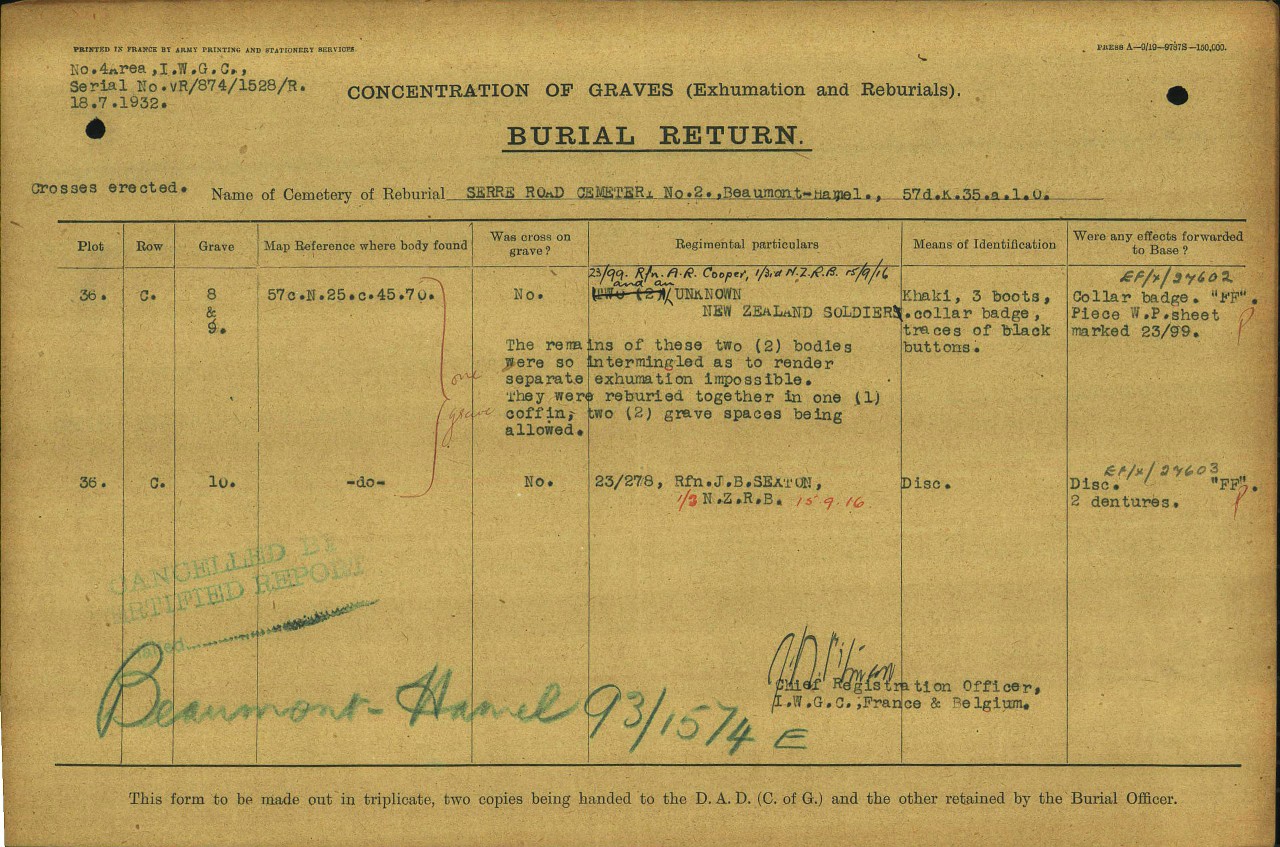 PRINTED IN FRANCE BY ARMY PRINTING AND STATIONERY SERVICES.
PRESS A—9/19—9787S—150,000.
No.4Area,I.W.G.C.,
Serial No.VR/874/1528/R.
18.7.1932.
CONCENTRATION OF GRAVES (Exhumation and Reburials).
BURIAL RETURN.
Crosses erected.
Name of Cemetery of Reburial SERRE ROAD CEMETERY No.2.,Beaumont-Hamel., 57d.K.35.a.1.0.
Plot Row Grave Map Reference where body found Was cross on grave? Regimental particulars Means of Identification Were any effects forwarded to Base?
23/99. Rfn. A.R. Cooper, 1/3rd N.Z.R.B. 15/9/16
EF/x/27602
and an
36. C. 8 57c.N.25.c.45.70. No. TWO (2) UNKNOWN Khaki, 3 boots, Collar badge. "FF".
& NEW ZEALAND SOLDIERS. collar badge, Piece W.P.sheet
9. traces of black marked 23/99.
buttons.
The remains of these two (2) bodies
were so intermingled as to render
separate exhumation impossible.
They were reburied together in one (1)
coffin, two (2) grave spaces being
allowed.
one
grave
EF/x/27603
36. C. 10. -do- No. 23/278, Rfn.J.B.SEATON, Disc. Disc. "FF".
1/3 N.Z.R.B. 15.9.16. 2 dentures.
CANCELLED BY
CERTIFIED REPORT
Beaumont-Hamel 93/1574 E
Chief Registration Officer,
I.W.G.C.,France & Belgium.
This form to be made out in triplicate, two copies being handed to the D. A. D. (C. of G.) and the other retained by the Burial Officer.